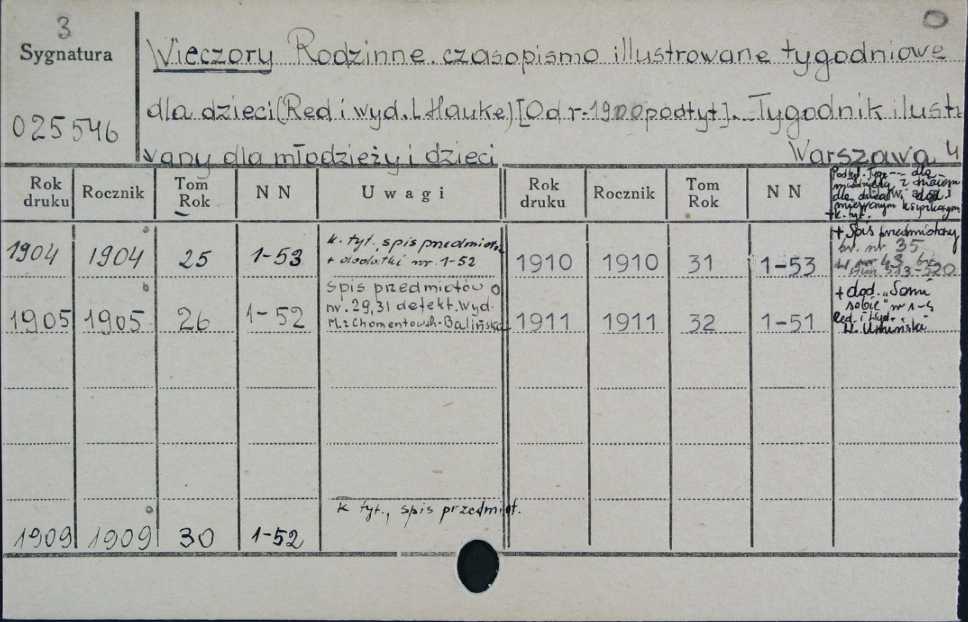 3
Sygnatura
025546
Wieczory Rodzinne. czasopismo illustrowane tygodniowe
dla dzieci (Red i wyd. L. Hauke) [Od r. 1900 podtyt]. Tygodnik ilustr
wany dla młodzieży i dzieci Warszawa 4
Rok druku Rocznik Tom Rok N N Uwagi Rok druku Rocznik Tom Rok N N
k. tyt.
1904 1904 25 1-53 k. tyt., spis przedmiotów + dodatki nr. 1-52 1910 1910 31 1-53 + Spis przedmiotowy nr. 35
1905 1905 26 1-52 Spis przedmiotów o nr. 29, 31 defekt. Wyd. M: Chomentowsk-Balińska 1911 1911 32 1-51 + dod. „Somu sobie" nr 1-4 Red. i Wyd. Umińska
1909 1909 30 1-52 k tyt., spis przedmiot.